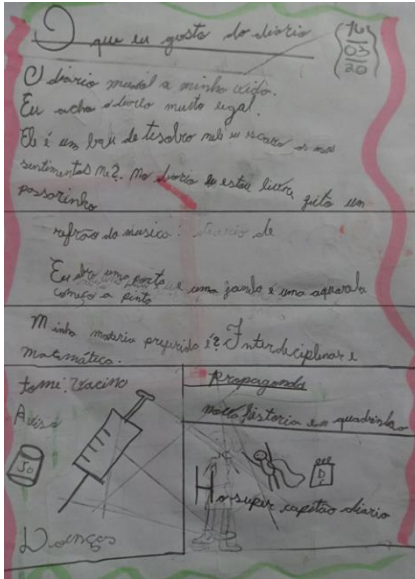 O que eu gosto do diário
16
03
20
O diário mudal a minha vida.
Eu acho o diario muito legal.
Ele é um bau de tesobro neli eu os meus
sentimentos me?. No diario eu estou livre, gito um
passarinho
refrão do musica: diario de
Eu abro uma porta e uma janela e uma aquarela
começo a pinta
Minha materia preferida é? Interdiciplinar e
matemática.
tome: vacina
Avisa
Propaganda
nossa historia em quadrinho
Doenças
Ho super capitão diario